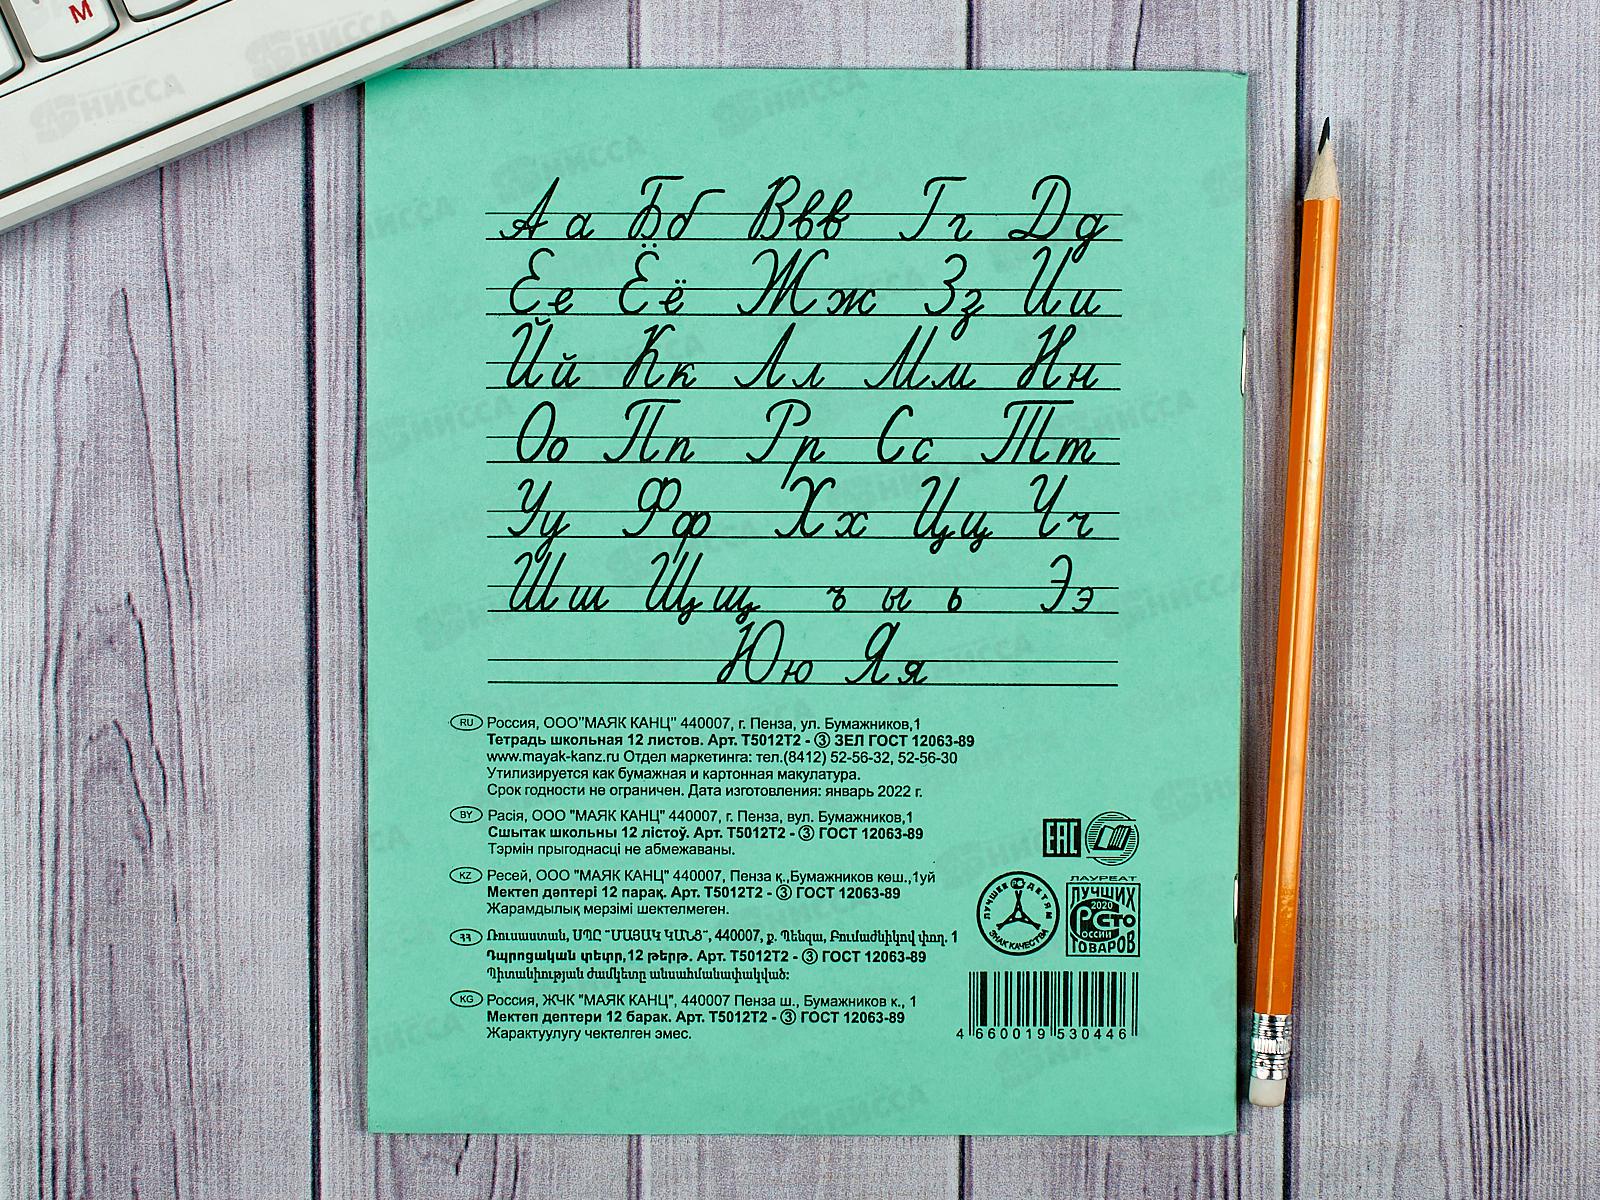 М
А а Б б В в в Г г Д д
Е е Ё ё Ж ж З з И и
Й й К к Л л М м Н н
О о П п Р р С с Т т
У у Ф ф Х х Ц ц Ч ч
Ш ш Щ щ ъ ы ь Э э
Ю ю Я я
RU Россия, ООО"МАЯК КАНЦ" 440007, г. Пенза, ул. Бумажников,1
Тетрадь школьная 12 листов. Арт. Т5012Т2 - ③ ЗЕЛ ГОСТ 12063-89
www.mayak-kanz.ru Отдел маркетинга: тел.(8412) 52-56-32, 52-56-30
Утилизируется как бумажная и картонная макулатура.
Срок годности не ограничен. Дата изготовления: январь 2022 г.
BY Расія, ООО "МАЯК КАНЦ" 440007, г. Пенза, вул. Бумажников,1
Сшытак школьны 12 лістоў. Арт. Т5012Т2 - ③ ГОСТ 12063-89
Тэрмін прыгоднасці не абмежаваны.
KZ Ресей, ООО "МАЯК КАНЦ" 440007, Пенза қ.,Бумажников көш.,1уй
Мектеп дәптері 12 парақ. Арт. Т5012Т2 - ③ ГОСТ 12063-89
Жарамдылық мерзімі шектелмеген.
ՀՀ Ռուսաստան, ՍՊԸ "ՄԱՅԱԿ ԿԱՆՑ", 440007, ք. Պենզա, Բումաժնիկով փող. 1
Դպրոցական տետր,12 թերթ. Арт. Т5012Т2 - ③ ГОСТ 12063-89
Պիտանիության ժամկետը անսահմանափակված:
KG Россия, ЖЧК "МАЯК КАНЦ", 440007 Пенза ш., Бумажников к., 1
Мектеп дептери 12 барак. Арт. Т5012Т2 - ③ ГОСТ 12063-89
Жарактуулугу чектелген эмес.
ЕАС
ЛУЧШЕЕ ДЕТЯМ
ЗНАК КАЧЕСТВА
ЛАУРЕАТ
ЛУЧШИХ
2020
РОССИИ СТО
ТОВАРОВ
4 660019 530446
НИССА